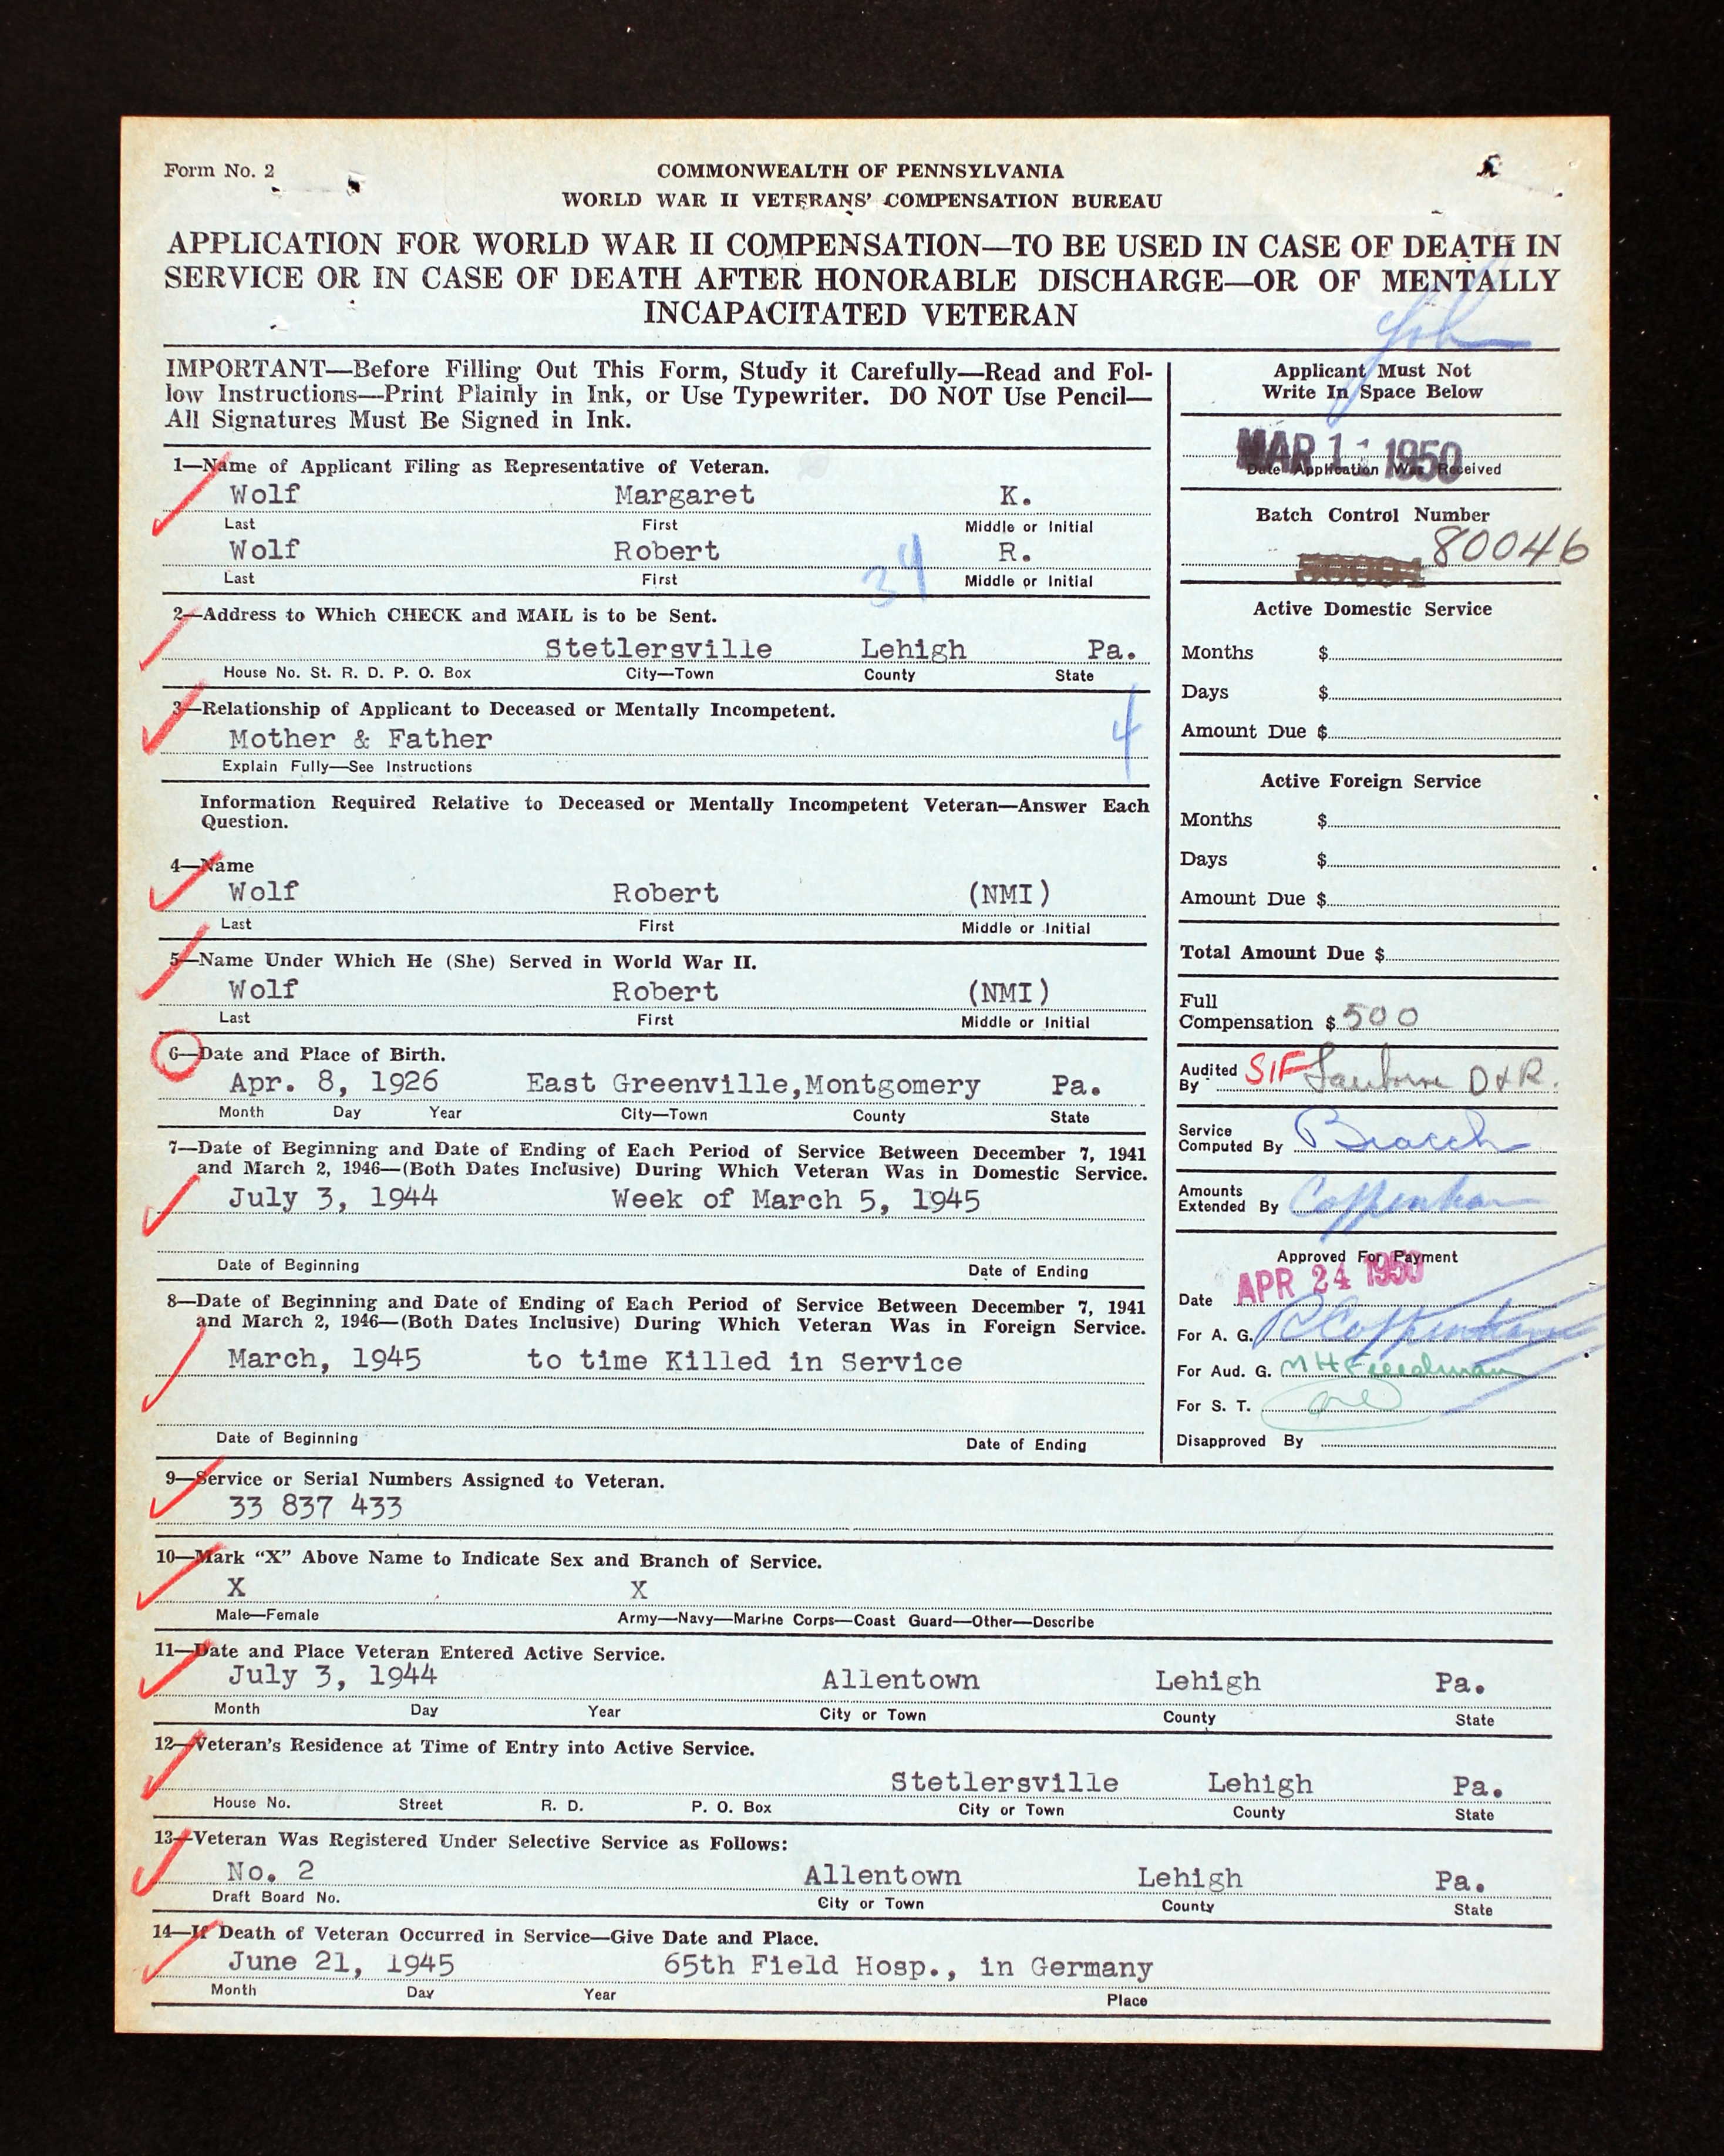 Form No. 2
COMMONWEALTH OF PENNSYLVANIA
WORLD WAR II VETERANS' COMPENSATION BUREAU
APPLICATION FOR WORLD WAR II COMPENSATION—TO BE USED IN CASE OF DEATH IN
SERVICE OR IN CASE OF DEATH AFTER HONORABLE DISCHARGE—OR OF MENTALLY
INCAPACITATED VETERAN
IMPORTANT—Before Filling Out This Form, Study it Carefully—Read and Fol-
low Instructions—Print Plainly in Ink, or Use Typewriter. DO NOT Use Pencil—
All Signatures Must Be Signed in Ink.
1—Name of Applicant Filing as Representative of Veteran.
Wolf Margaret K.
Last First Middle or Initial
Wolf Robert R.
Last First 34 Middle or Initial
2—Address to Which CHECK and MAIL is to be Sent.
Stetlersville Lehigh Pa.
House No. St. R. D. P. O. Box City—Town County State
3—Relationship of Applicant to Deceased or Mentally Incompetent.
Mother & Father 4
Explain Fully—See Instructions
Information Required Relative to Deceased or Mentally Incompetent Veteran—Answer Each
Question.
4—Name
Wolf Robert (NMI)
Last First Middle or Initial
5—Name Under Which He (She) Served in World War II.
Wolf Robert (NMI)
Last First Middle or Initial
6—Date and Place of Birth.
Apr. 8, 1926 East Greenville,Montgomery Pa.
Month Day Year City—Town County State
7—Date of Beginning and Date of Ending of Each Period of Service Between December 7, 1941
and March 2, 1946—(Both Dates Inclusive) During Which Veteran Was in Domestic Service.
July 3, 1944 Week of March 5, 1945
Date of Beginning Date of Ending
8—Date of Beginning and Date of Ending of Each Period of Service Between December 7, 1941
and March 2, 1946—(Both Dates Inclusive) During Which Veteran Was in Foreign Service.
March, 1945 to time Killed in Service
Date of Beginning Date of Ending
Applicant Must Not
Write In Space Below
MAR 11 1950
Date Application Was Received
Batch Control Number
80046
Active Domestic Service
Months $
Days $
Amount Due $
Active Foreign Service
Months $
Days $
Amount Due $
Total Amount Due $
Full
Compensation $ 500
Audited
By SIF D&R.
Service
Computed By
Amounts
Extended By
Approved For Payment
Date APR 24 1950
For A. G.
For Aud. G. M H Freedman
For S. T.
Disapproved By
9—Service or Serial Numbers Assigned to Veteran.
33 837 433
10—Mark "X" Above Name to Indicate Sex and Branch of Service.
X X
Male—Female Army—Navy—Marine Corps—Coast Guard—Other—Describe
11—Date and Place Veteran Entered Active Service.
July 3, 1944 Allentown Lehigh Pa.
Month Day Year City or Town County State
12—Veteran's Residence at Time of Entry into Active Service.
Stetlersville Lehigh Pa.
House No. Street R. D. P. O. Box City or Town County State
13—Veteran Was Registered Under Selective Service as Follows:
No. 2 Allentown Lehigh Pa.
Draft Board No. City or Town County State
14—If Death of Veteran Occurred in Service—Give Date and Place.
June 21, 1945 65th Field Hosp., in Germany
Month Day Year Place